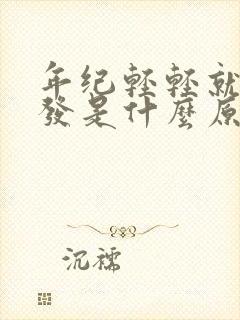 年纪輕輕就
發是什麼原
沉穤